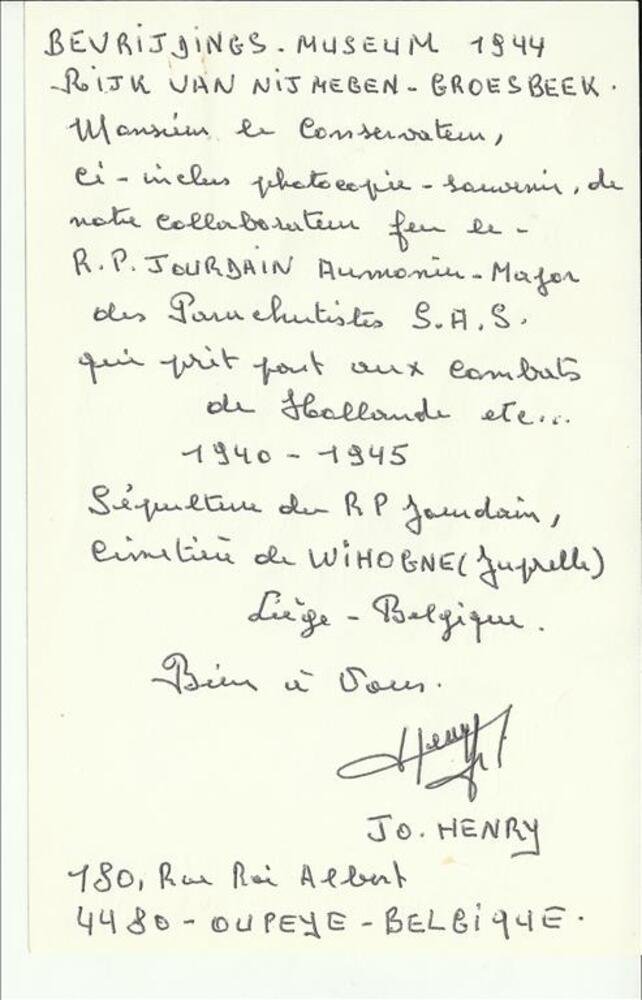 BEVRIJDINGS-MUSEUM 1944
RIJK VAN NIJMEGEN-GROESBEEK.
Monsieur le Conservateur,
Ci-inclus photocopie-souvenir, de
notre collaborateur feu le -
R.P. JOURDAIN Aumonier-Major
des Parachutistes S.A.S.
qui prit part aux combats
de Hollande etc...
1940-1945
Sépulture du RP Jourdain,
Cimetière de WIHOGNE (Juprelle)
Liège - Belgique.
Bien à Vous.
Henry
JO. HENRY
180, Rue Roi Albert
4480 - OUPEYE - BELGIQUE.